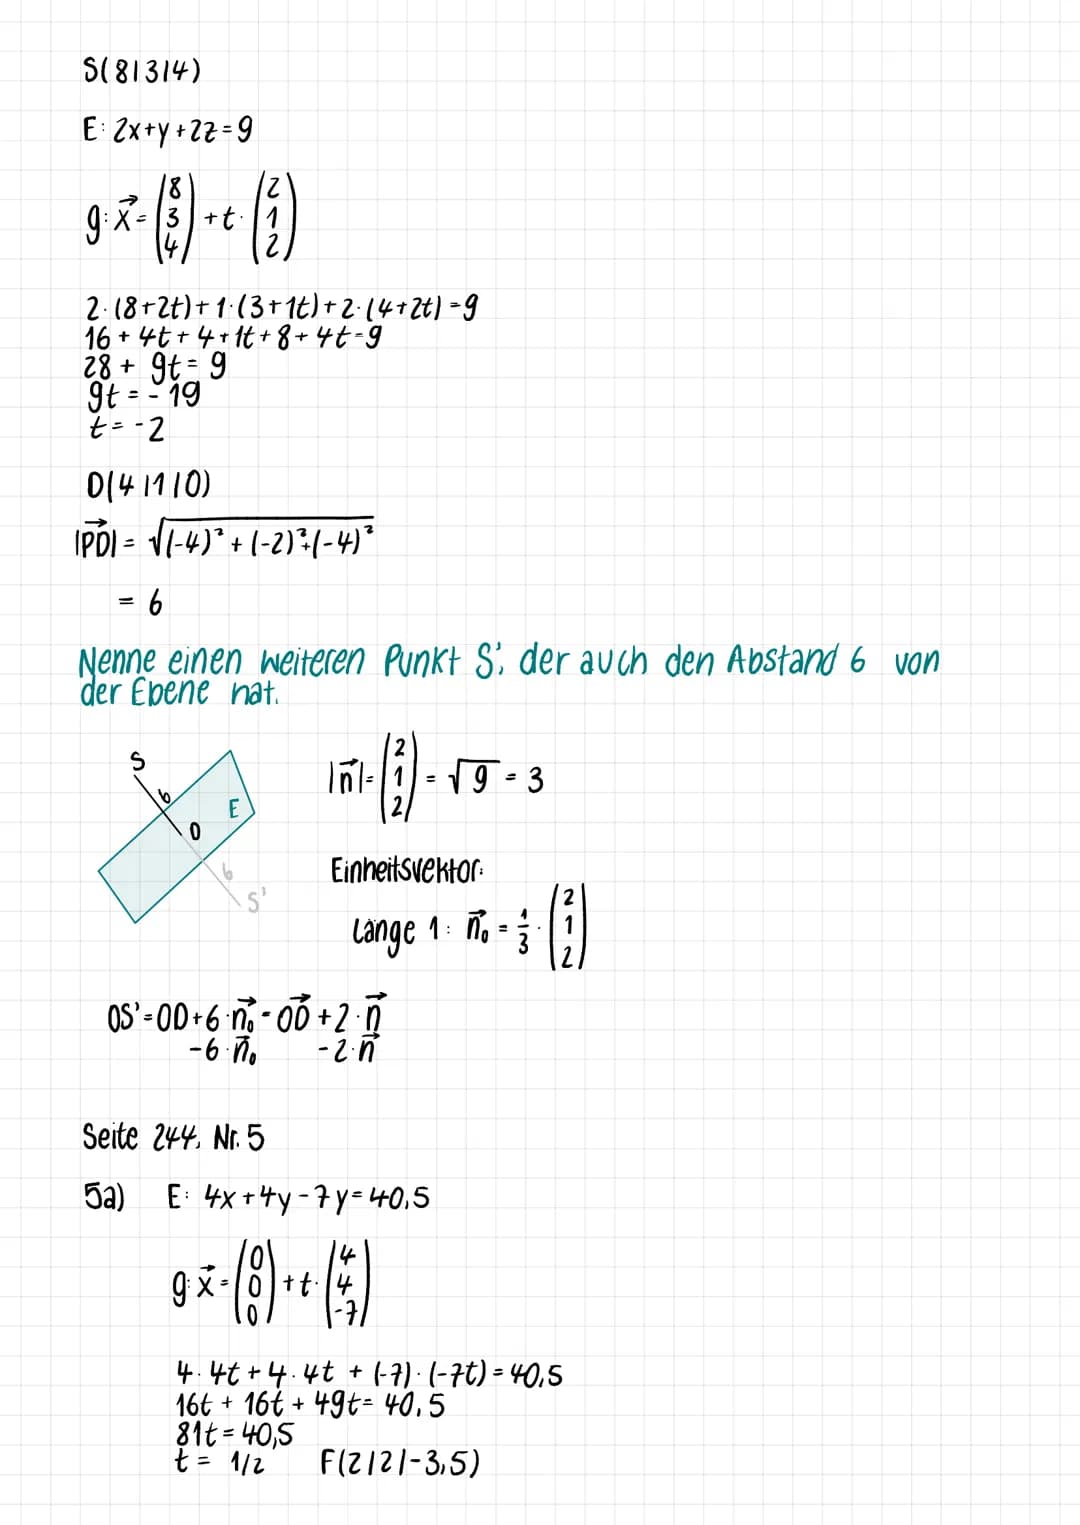 S(8|3|4)
E: 2x+y+2z=9
g: x⃗ = (8 3 4) + t · (2 1 2)
2·(8+2t)+1·(3+1t)+2·(4+2t)=9
16 + 4t + 4 + 1t + 8 + 4t = 9
28 + 9t = 9
9t = -19
t = -2
D(4|1|0)
|PD⃗| = √(-4)² + (-2)² + (-4)²
= 6
Nenne einen weiteren Punkt S', der auch den Abstand 6 von
der Ebene hat.
S
6
E
D
6
S'
|n⃗| = (2 1 2) = √9 = 3
Einheitsvektor:
Länge 1: n⃗₀ = 1/3 · (2 1 2)
OS' = OD + 6 · n⃗₀ = OD⃗ + 2 · n⃗
-6 · n⃗₀ -2 · n⃗
Seite 244, Nr. 5
5a) E: 4x+4y-7y=40,5
g: x⃗ = (0 0 0) + t · (4 4 -7)
4·4t + 4·4t + (-7)·(-7t) = 40,5
16t + 16t + 49t = 40,5
81t = 40,5
t = 1/2 F(2|2|-3,5)